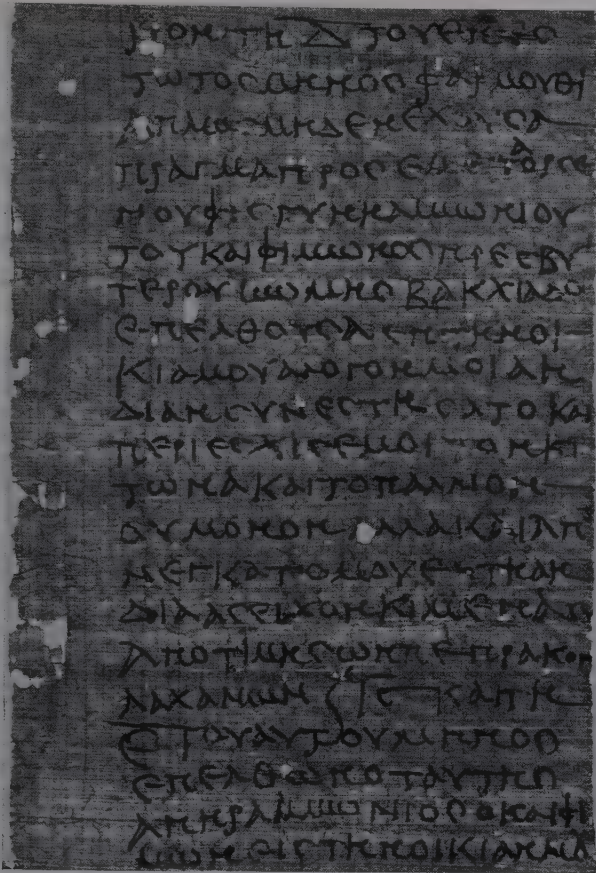 ΙΟΝ ΤΗ Δ ΤΟΥ ΕΝΕΣ
ΤΩΤΟΣ ΜΗΝΟΣ ΦΑΡΜΟΥΘΙ
ΑΠΛΩΣ ΜΗΔΕΝ ΕΧΟΥΣΑ
ΠΡΑΓΜΑ ΠΡΟΣ ΕΜΕ ΟΡΣΕ
ΝΟΥΦΙΣ ΓΥΝΗ ΑΜΜΩΝΙΟΥ
ΤΟΥ ΚΑΙ ΦΙΜΩΝΟΣ ΠΡΕΣΒΥ
ΤΕΡΟΥ ΚΩΜΗΣ ΒΑΚΧΙΑΔΟ
ΕΠΕΛΘΟΥΣΑ ΕΙΣ ΤΗΝ ΟΙ
ΚΙΑ ΜΟΥ ΑΛΟΓΟΝ ΜΟΙ ΑΗ
ΔΙΑΝ ΣΥΝΕΣΤΗΣΑΤΟ ΚΑΙ
ΠΕΡΙΕΣΧΙΣΕ ΜΟΙ ΤΟΝ ΚΙ
ΤΩΝΑ ΚΑΙ ΤΟ ΠΑΛΛΙΟΝ
ΟΥ ΜΟΝΟΝ ΑΛΛΑ ΚΑΙ ΑΠ
ΗΝΕΓΚΑΤΟ ΜΟΥ
ΚΙΜΕΝΑΣ
ΑΠΟ ΤΙΜΗΣ ΩΝ ΠΕΠΡΑΚΟΝ
ΛΑΧΑΝΩΝ ΚΑΙ ΤΗ
Ε ΤΟΥ ΑΥΤΟΥ ΜΗΝΟΣ
ΕΠΕΛΘΩΝ Ο ΤΑΥΤΗΣ
ΑΝΗΡ ΑΜΜΩΝΙΟΣ Ο ΚΑΙ ΦΙ
ΜΩΝ ΕΙΣ ΤΗΝ ΟΙΚΙΑΝ ΜΟ